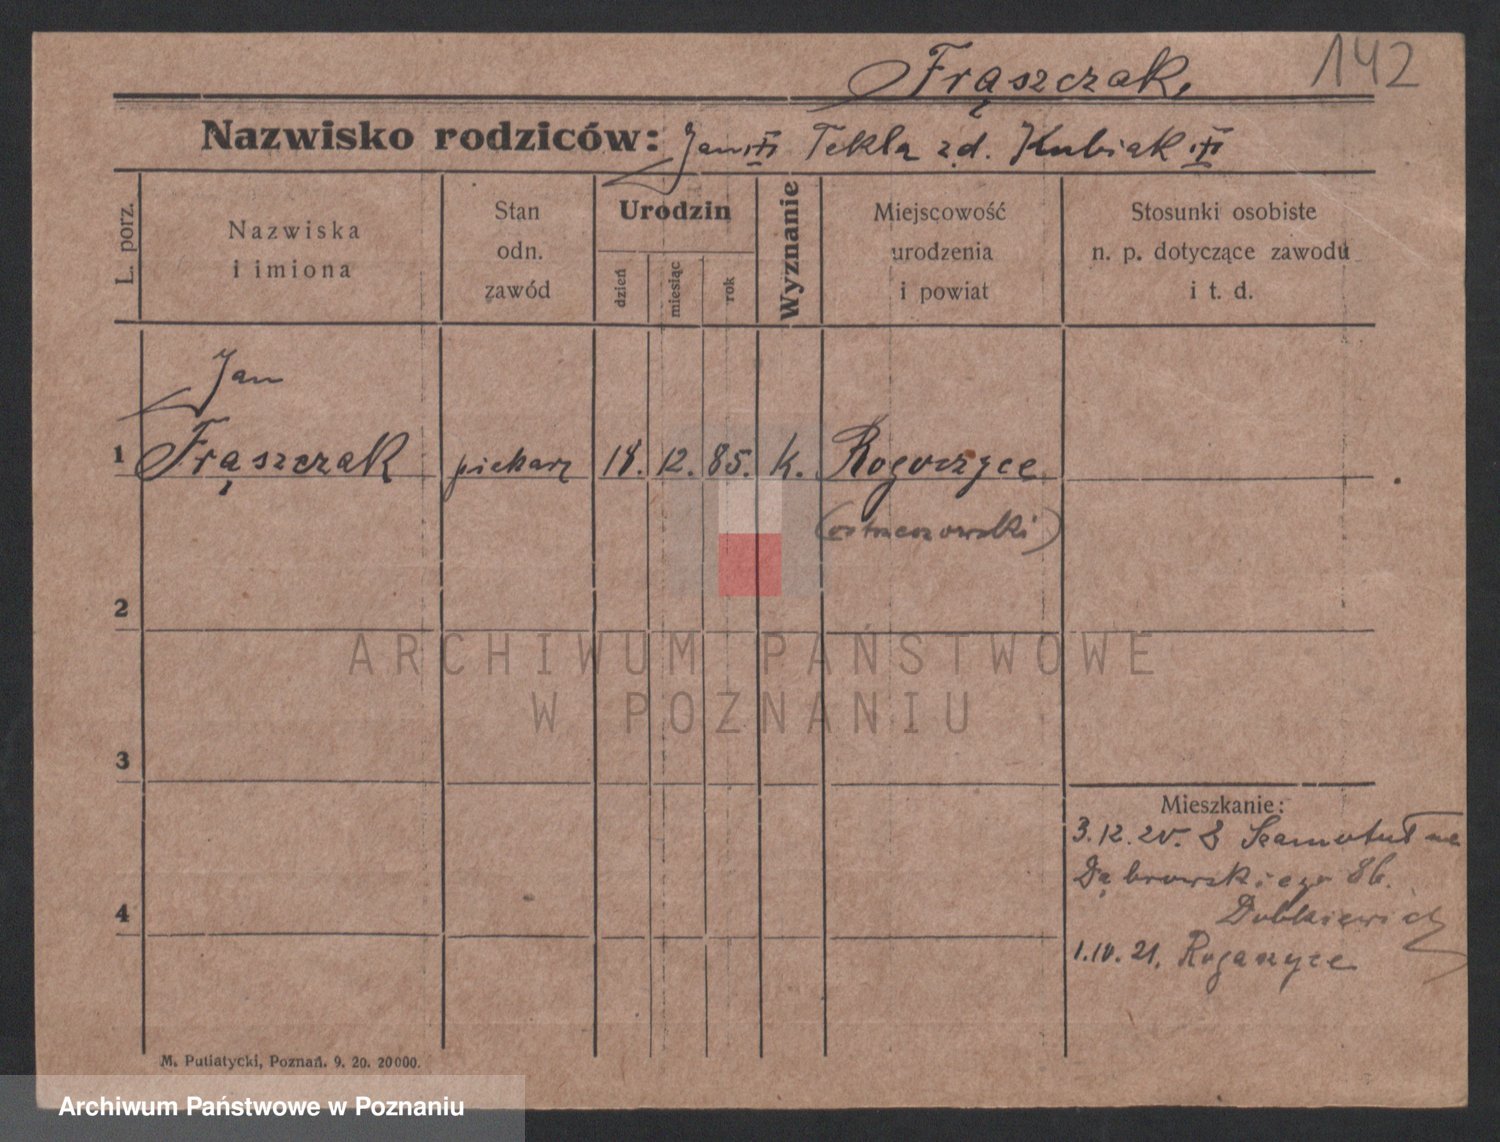 142
Frąszczak,
Nazwisko rodziców: Jan Tekla z d. Kubiak
L. porz.
Nazwiska
i imiona
Stan
odn.
zawód
Urodzin
dzień
miesiąc
rok
Wyznanie
Miejscowość
urodzenia
i powiat
Stosunki osobiste
n. p. dotyczące zawodu
i t. d.
Jan
1 Frąszczak piekarz 18. 12. 85. k. Rogoszyce
2
3
4
Mieszkanie:
3.12.20. Szamotuł
Dąbrowskiego 86.
1.10.21. Rogaszyce
M. Putiatycki, Poznań. 9. 20. 20000.
ARCHIWUM PAŃSTWOWE
W POZNANIU
Archiwum Państwowe w Poznaniu